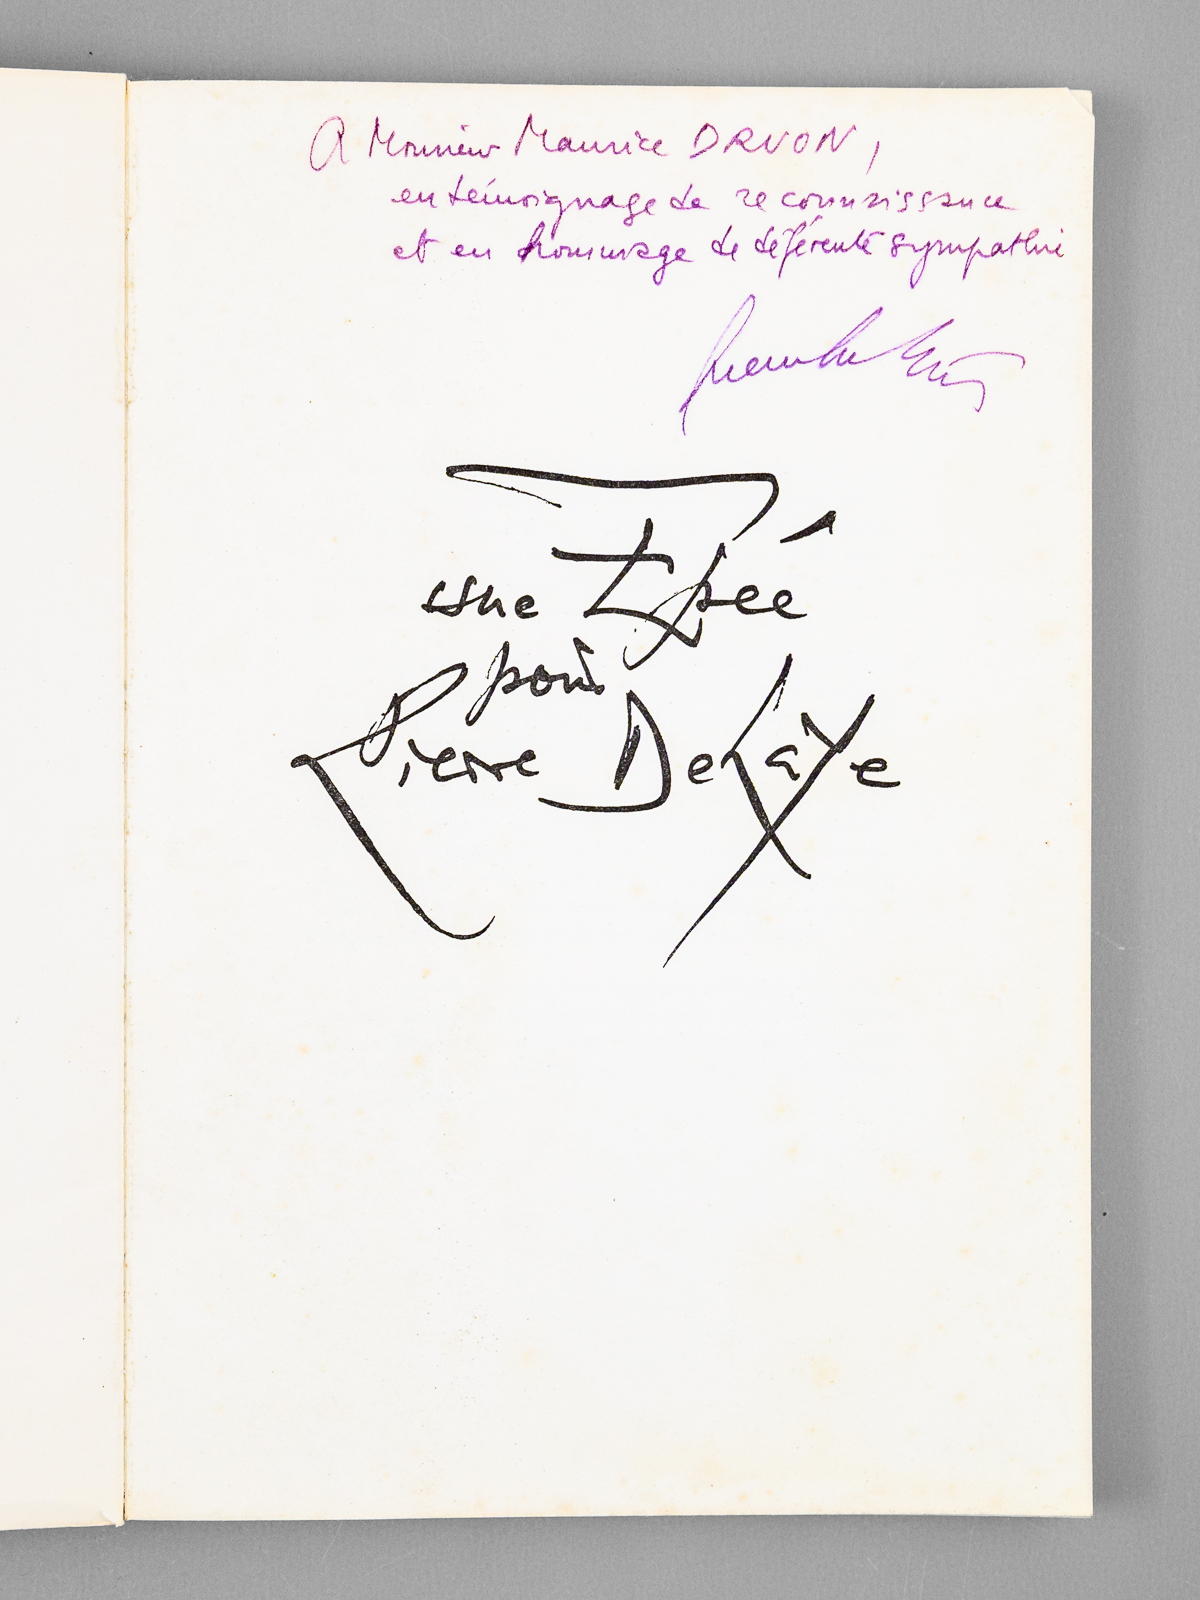 A Monsieur Maurice DRUON,
en témoignage de reconnaissance
et en hommage de déférente sympathie
une Épée
pour
Pierre DeLaye